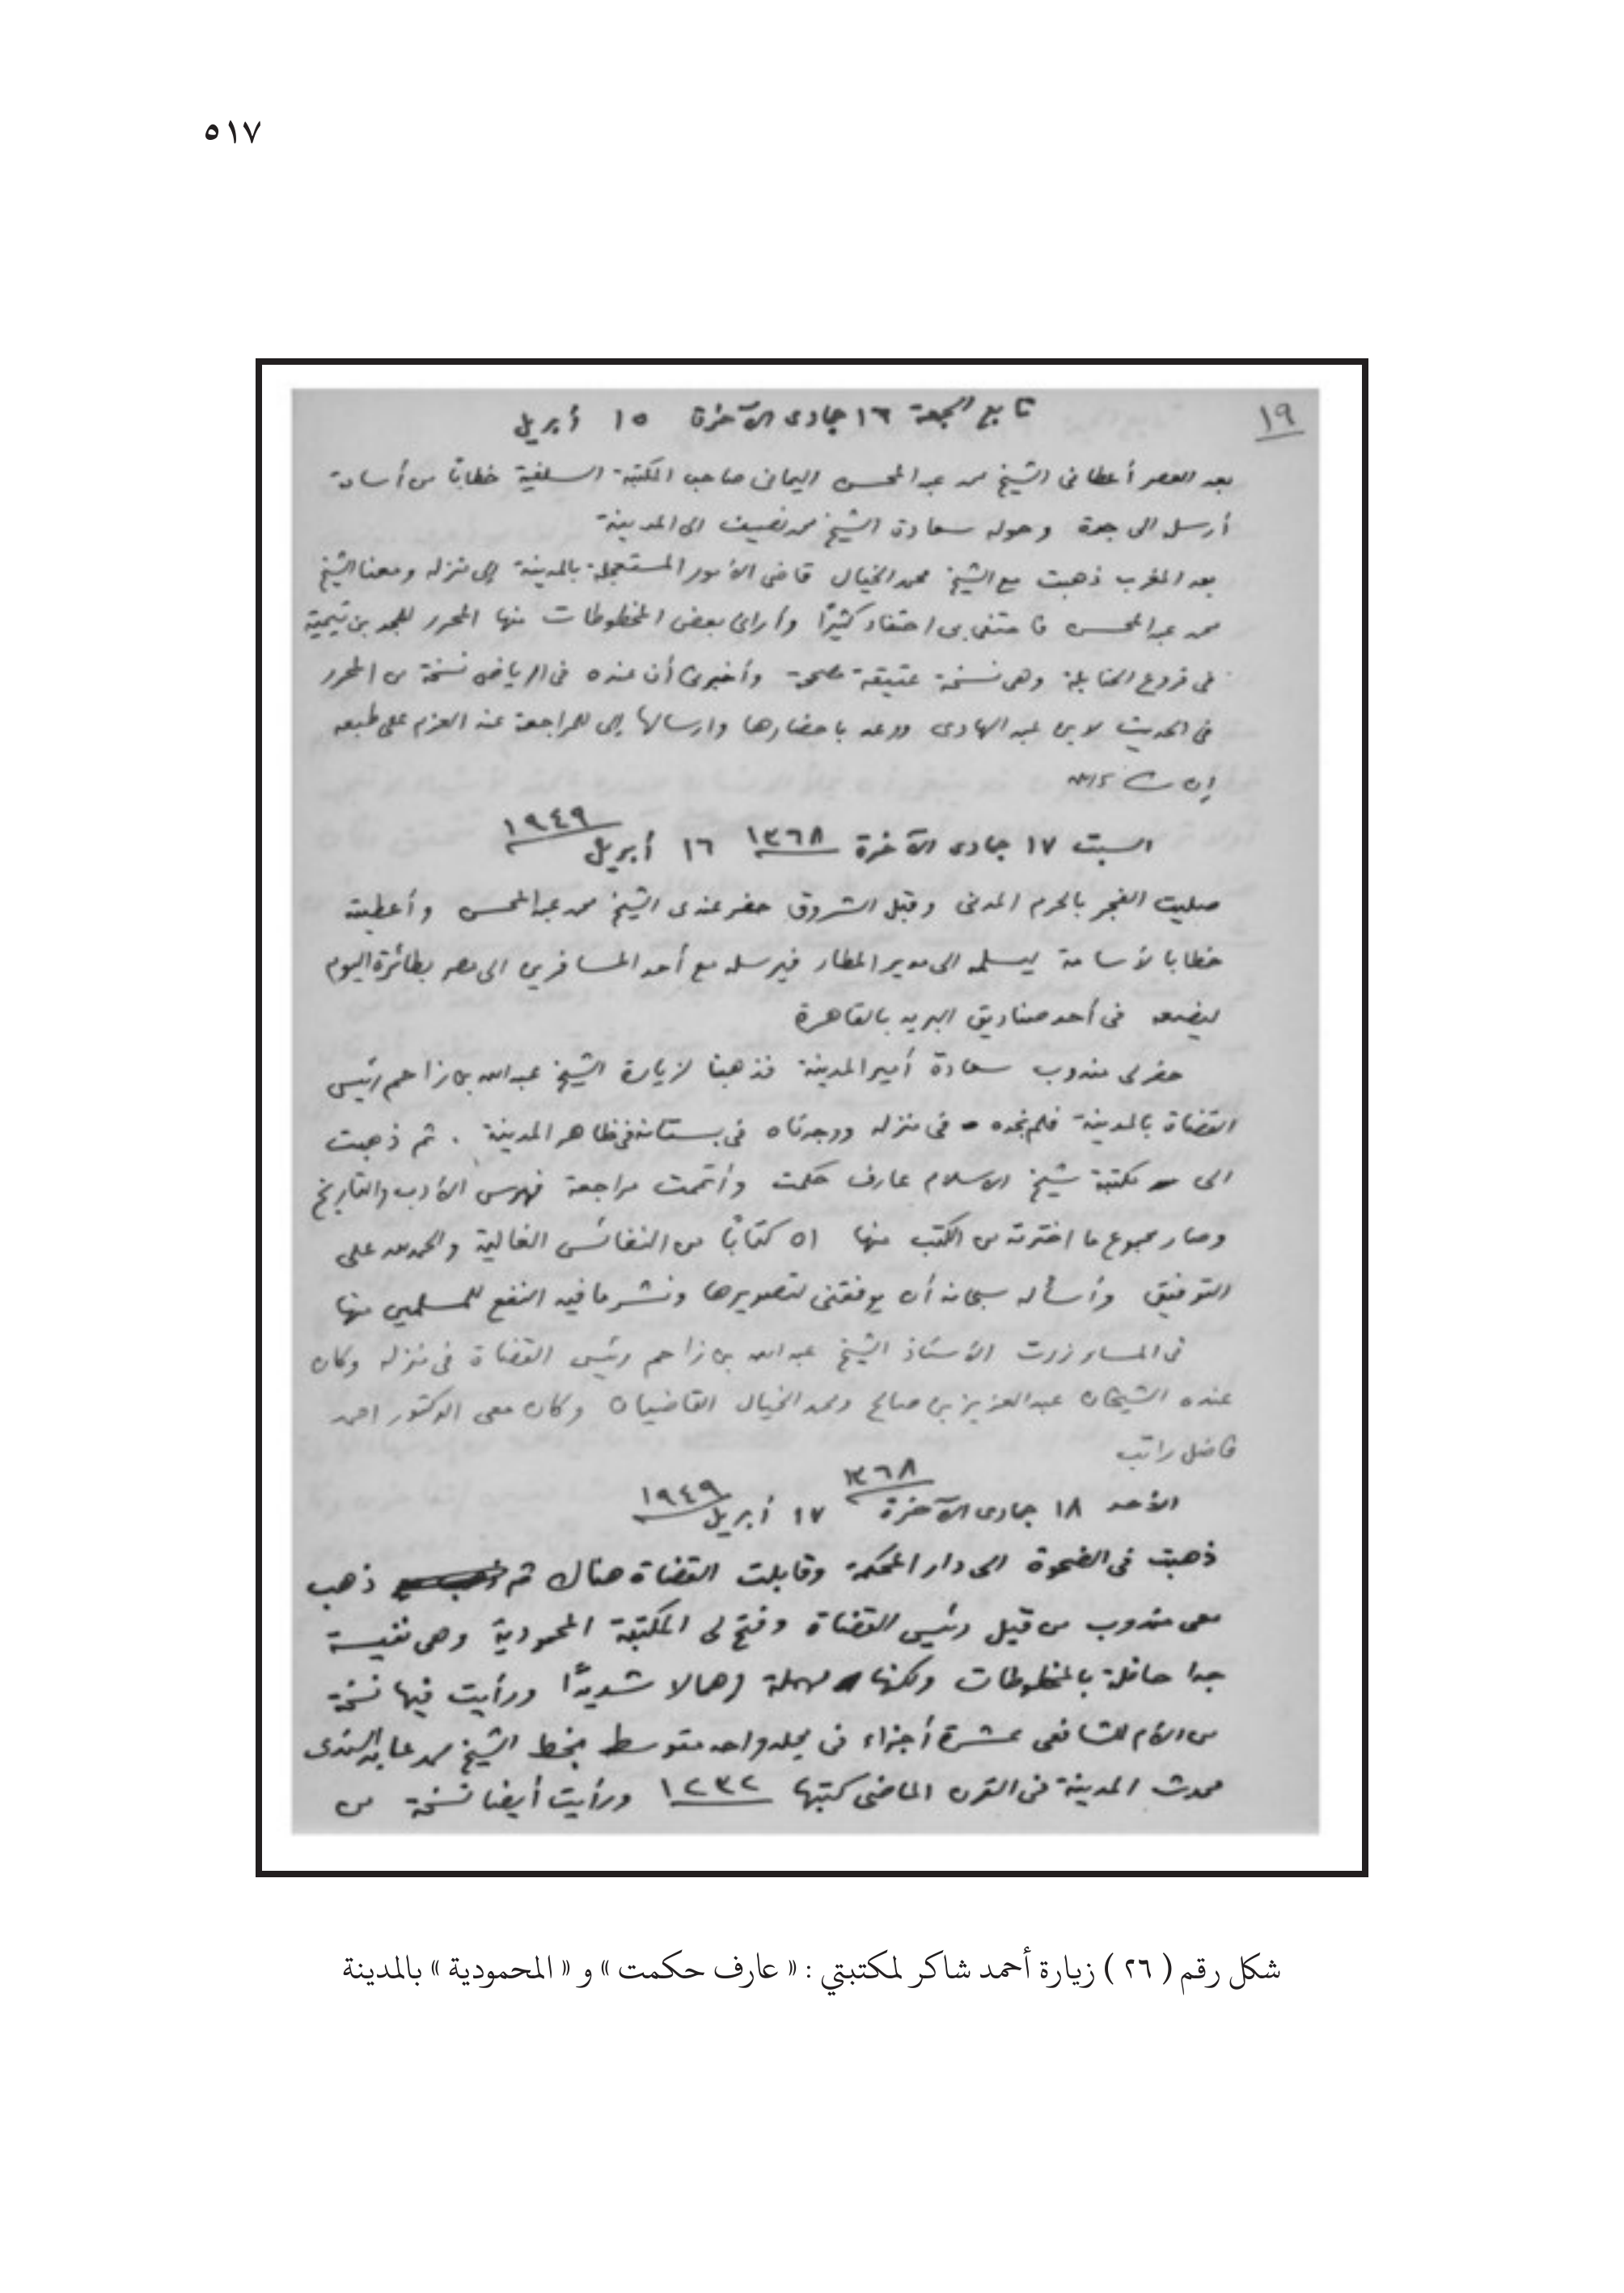 ٥١٧
١٩
تابع الجمعة ١٦ جمادى الآخرة ١٥ أبريل
بعد العصر أعطانى الشيخ محمد عبد المحسن اليمانى صاحب المكتبة السلفية خطابًا من أسامة
أرسل الى جدة وحوله سعادة الشيخ محمد نصيف الى المدينة
بعد المغرب ذهبت مع الشيخ محمد الخيال قاضى الأمور المستعجلة بالمدينة إلى منزله ومعنا الشيخ
محمد عبد المحسن فاحتفى بى احتفاء كثيرًا وأرانى بعض المخطوطات منها المحرر للمجد بن تيمية
فى فروع الحنابلة وهى نسخة عتيقة مصححة وأخبرنى أن عنده فى الرياض نسخة من المحرر
فى الحديث لابن عبد الهادى ووعد باحضارها وارسالها إلى للمراجعة عند العزم على طبعه
إن شاء الله
السبت ١٧ جمادى الآخرة ١٣٦٨ ١٦ أبريل ١٩٤٩
صليت الفجر بالحرم المدنى وقبل الشروق حضر عندى الشيخ محمد عبد المحسن وأعطيته
خطابا لأسامة ليسلمه الى مدير المطار فيرسله مع أحد المسافرين الى مصر بطائرة اليوم
ليضعه فى أحد صناديق البريد بالقاهرة
حضر لى مندوب سعادة أمير المدينة فذهبنا لزيارة الشيخ عبد الله بن زاحم رئيس
القضاة بالمدينة فلم نجده فى منزله ووجدناه فى بستانه فى ظاهر المدينة . ثم ذهبت
الى مكتبة شيخ الاسلام عارف حكمت وأتممت مراجعة فهرس الأدب والتاريخ
وصار مجموع ما اخترته من الكتب منها ٥١ كتابًا من النفائس الغالية والحمد لله على
التوفيق وأسأله سبحانه أن يوفقنى لتصويرها ونشر ما فيه النفع للمسلمين منها
فى المساء زرت الأستاذ الشيخ عبد الله بن زاحم رئيس القضاة فى منزله وكان
عنده الشيخان عبد العزيز بن صالح ومحمد الخيال القاضيان وكان معى الدكتور احمد
فاضل راتب
الأحد ١٨ جمادى الآخرة ١٣٦٨ ١٧ أبريل ١٩٤٩
ذهبت فى الضحوة الى دار المحكمة وقابلت القضاة هناك ثم ذهب
معى مندوب من قبل رئيس القضاة وفتح لى المكتبة المحمودية وهى نفيسة
جدا حافلة بالمخطوطات ولكنها مهملة إهمالا شديدًا ورأيت فيها نسخة
من الأم للشافعى عشرة أجزاء فى مجلد واحد متوسط بخط الشيخ محمد عابد السندى
محدث المدينة فى القرن الماضى كتبها ١٢٣٢ ورأيت أيضا نسخة من
شكل رقم ( ٢٦ ) زيارة أحمد شاكر لمكتبتي : « عارف حكمت » و « المحمودية » بالمدينة